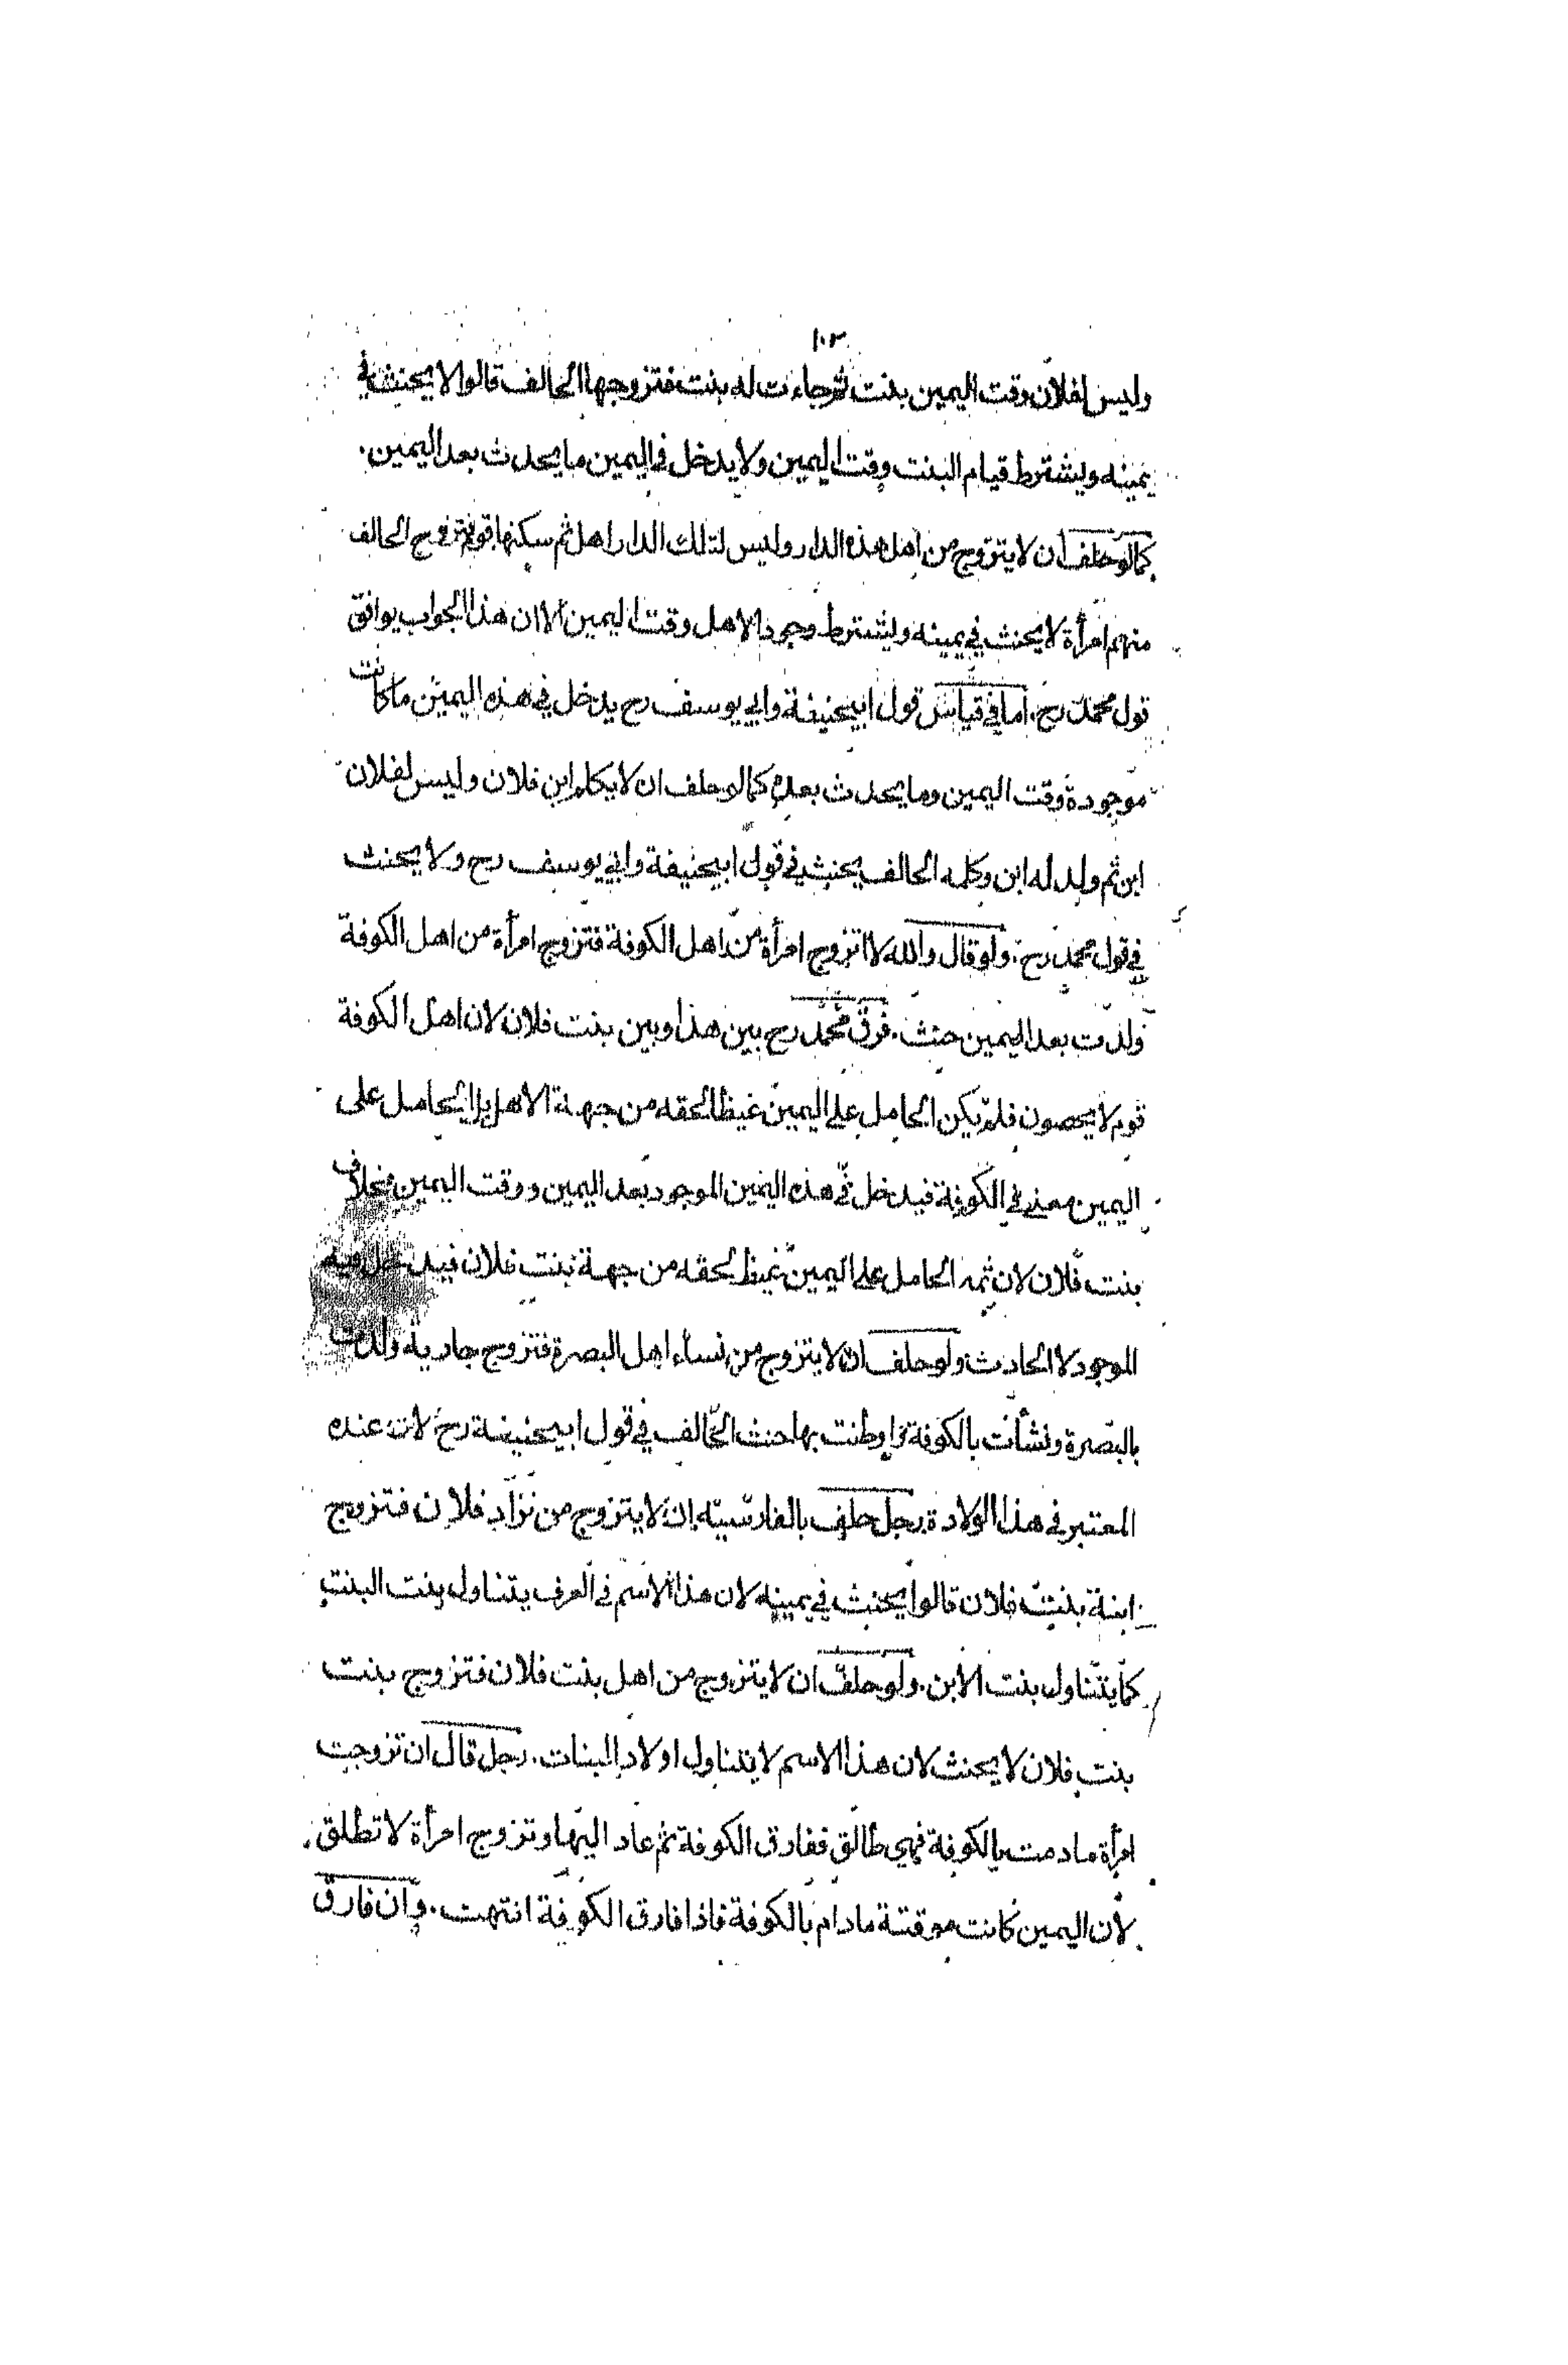 ١٠٣
وليس لفلان وقت اليمين بنت ثم جاءت له بنت فتزوجها الحالف قالوا لا يحنث في
يمينه ويشترط قيام البنت وقت اليمين ولا يدخل في اليمين ما يحدث بعد اليمين.
كما لو حلف ان لا يتزوج من اهل هذه الدار وليس لتلك الدار اهل ثم سكنها قوم فتزوج الحالف
منهم امرأة لا يحنث في يمينه ويشترط وجود الاهل وقت اليمين الا ان هذا الجواب يوافق
قول محمد رح. اما في قياس قول ابيحنيفة وابي يوسف رح يدخل في هذه اليمين ما كانت
موجودة وقت اليمين وما يحدث بعده كما لو حلف ان لا يكلم ابن فلان وليس لفلان
ابن ثم ولد له ابن وكلمه الحالف يحنث في قول ابيحنيفة وابي يوسف رح ولا يحنث
في قول محمد رح. ولو قال والله لا اتزوج امرأة من اهل الكوفة فتزوج امرأة من اهل الكوفة
ولدت بعد اليمين حنث. فرق محمد رح بين هذا وبين بنت فلان لان اهل الكوفة
قوم لا يحصون فلم يكن الحامل على اليمين غيظا لحقه من جهة الاهل بل الحامل على
اليمين معنى في الكوفة فيدخل في هذه اليمين الموجود بعد اليمين ووقت اليمين بخلاف
بنت فلان لان ثمه الحامل على اليمين غيظ لحقه من جهة بنت فلان فيدخل فيه
الموجود لا الحادث ولو حلف ان لا يتزوج من نساء اهل البصرة فتزوج جارية ولدت
بالبصرة ونشأت بالكوفة واوطنت بها حنث الحالف في قول ابيحنيفة رح لان عنده
المعتبر في هذا الولادة. رجل حلف بالفارسية ان لا يتزوج من نزاد فلان فتزوج
ابنة بنت فلان قالوا يحنث في يمينه لان هذا الاسم في العرف يتناول بنت البنت
كما يتناول بنت الابن. ولو حلف ان لا يتزوج من اهل بنت فلان فتزوج بنت
بنت فلان لا يحنث لان هذا الاسم لا يتناول اولاد البنات. رجل قال ان تزوجت
امرأة ما دمت بالكوفة فهي طالق ففارق الكوفة ثم عاد اليها وتزوج امرأة لا تطلق
لان اليمين كانت موقتة ما دام بالكوفة فاذا فارق الكوفة انتهت. وان فارق